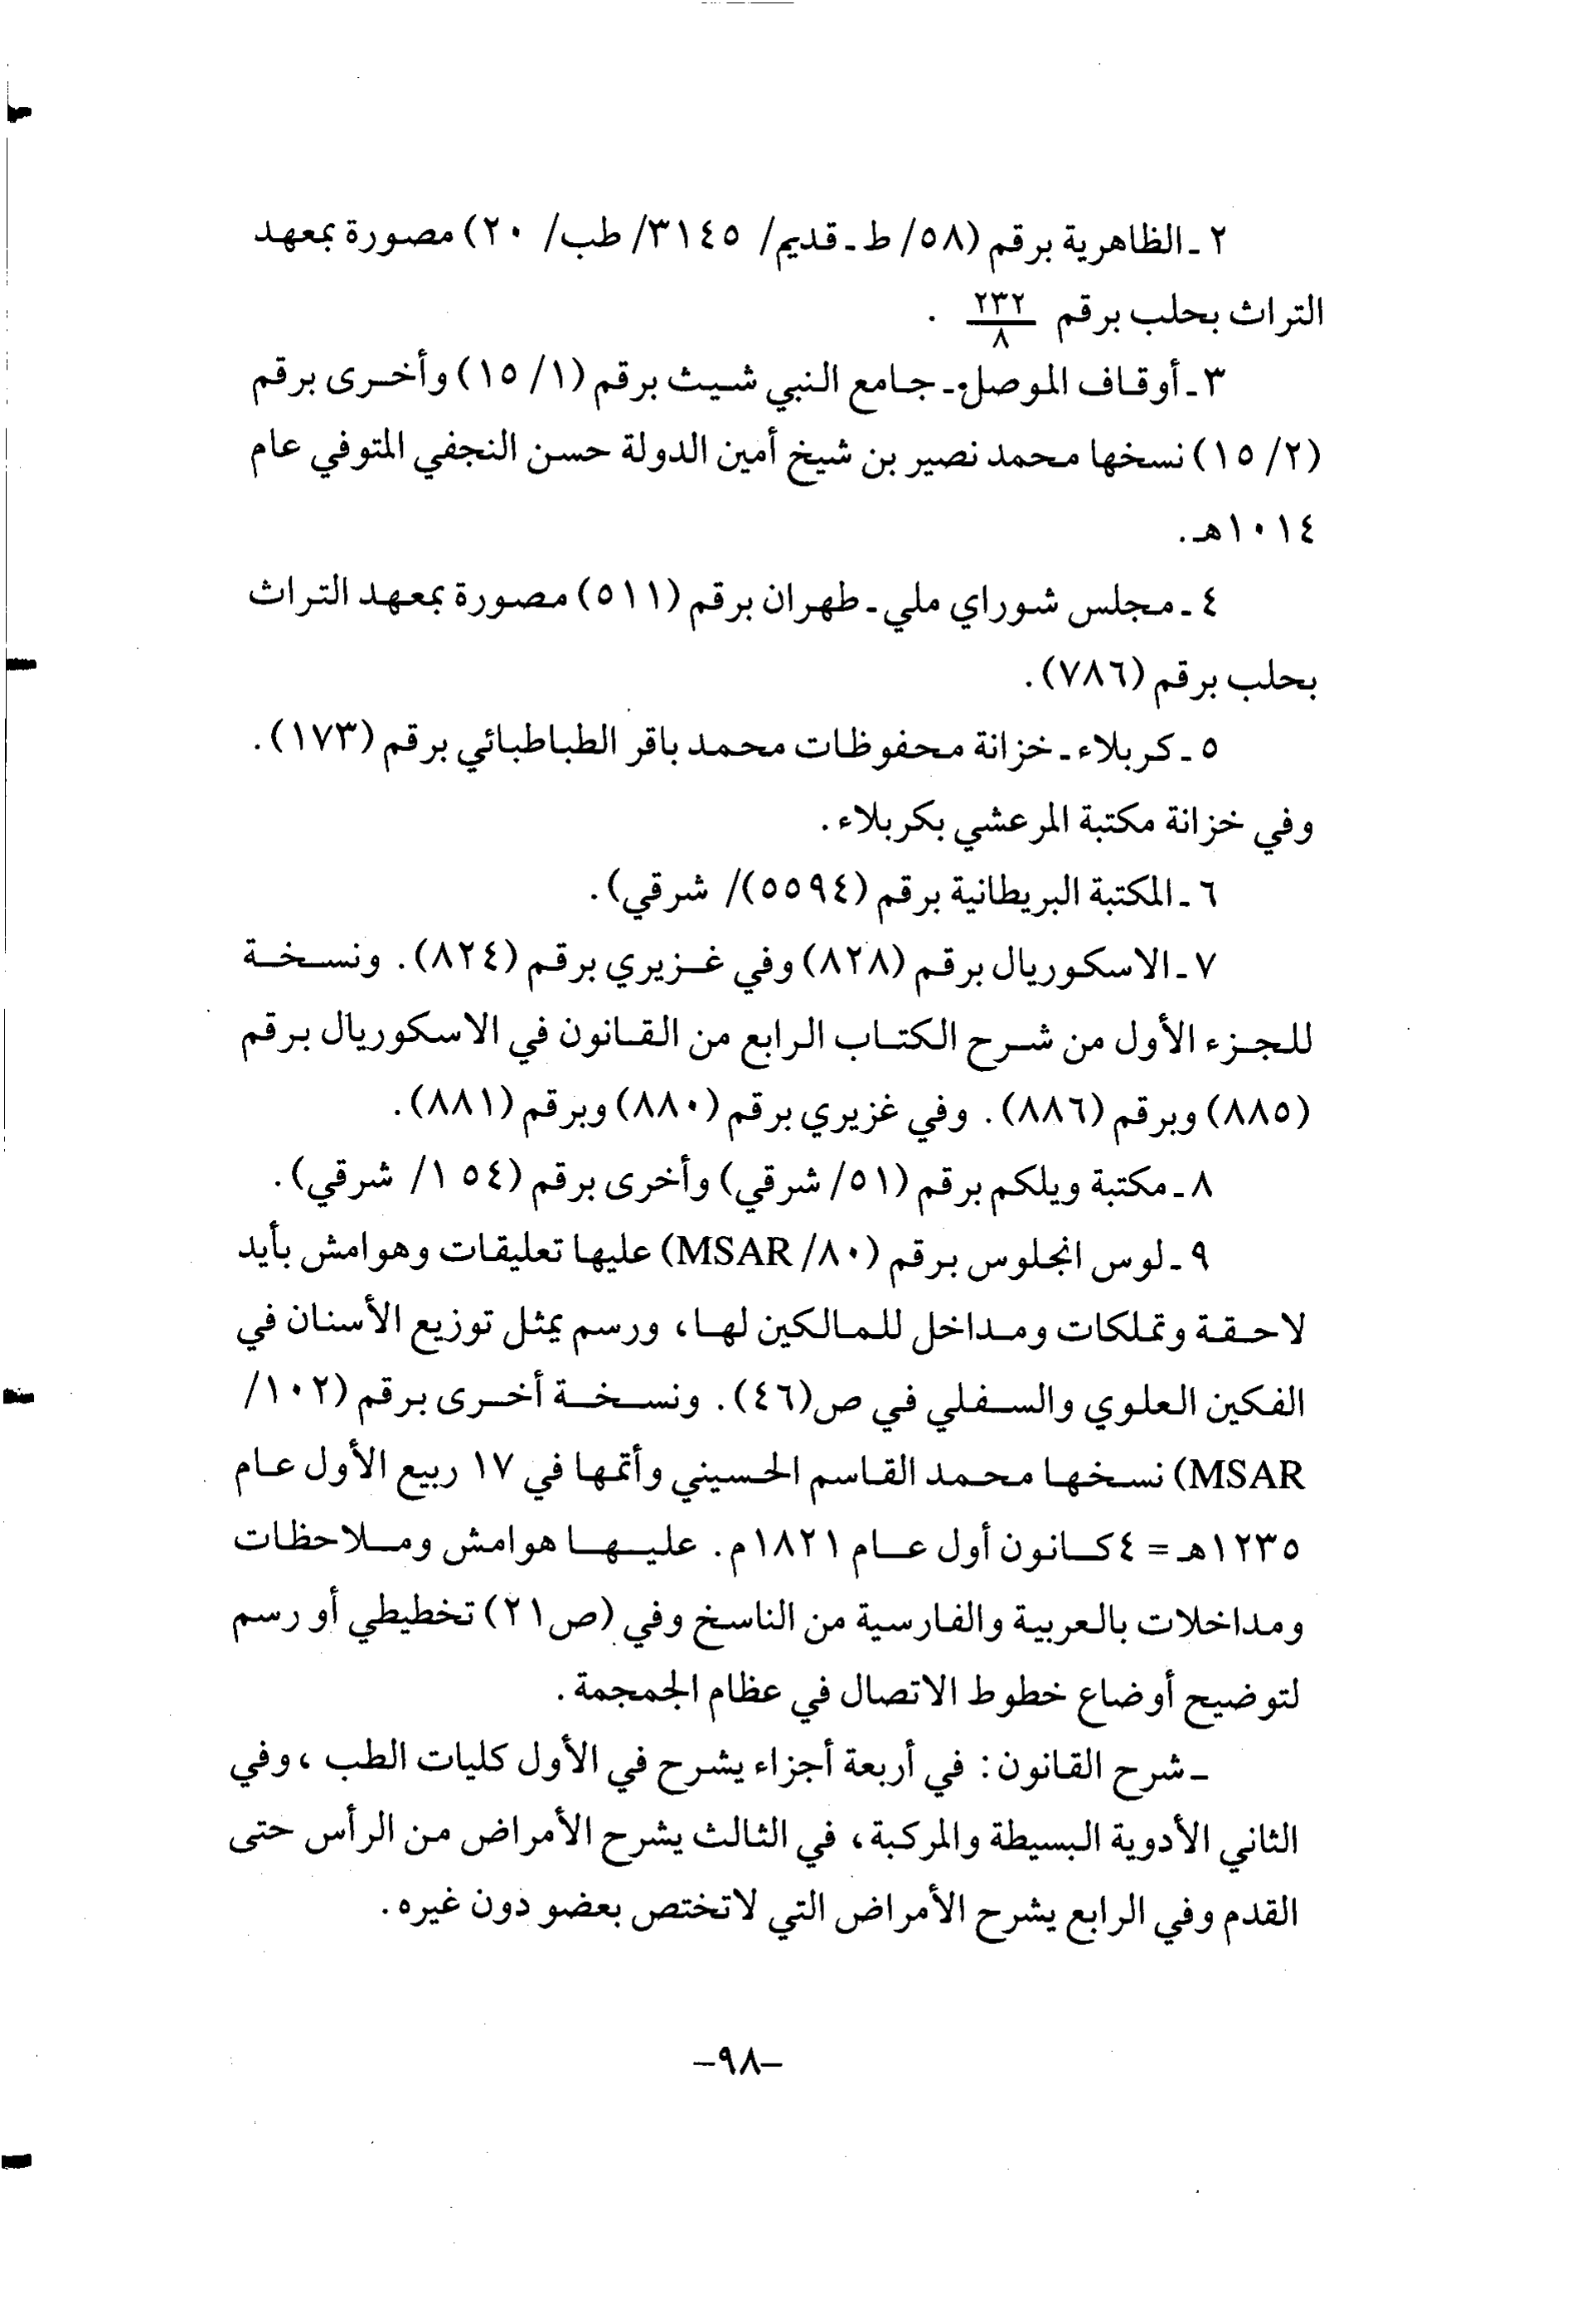 ٢ ـ الظاهرية برقم (٥٨/ ط ـ قديم/ ٣١٤٥/ طب/ ٢٠) مصورة بمعهد
التراث بحلب برقم ٢٣٢/٨ .
٣ ـ أوقاف الموصل ـ جامع النبي شيث برقم (١/ ١٥) وأخرى برقم
(٢/ ١٥) نسخها محمد نصير بن شيخ أمين الدولة حسن النجفي المتوفي عام
١٠١٤هـ.
٤ ـ مجلس شوراي ملي ـ طهران برقم (٥١١) مصورة بمعهد التراث
بحلب برقم (٧٨٦).
٥ ـ كربلاء ـ خزانة محفوظات محمد باقر الطباطبائي برقم (١٧٣).
وفي خزانة مكتبة المرعشي بكربلاء.
٦ ـ المكتبة البريطانية برقم (٥٥٩٤)/ شرقي).
٧ ـ الاسكوريال برقم (٨٢٨) وفي غزيري برقم (٨٢٤). ونسخة
للجزء الأول من شرح الكتاب الرابع من القانون في الاسكوريال برقم
(٨٨٥) وبرقم (٨٨٦). وفي غزيري برقم (٨٨٠) وبرقم (٨٨١).
٨ ـ مكتبة ويلكم برقم (٥١/ شرقي) وأخرى برقم (١٥٤/ شرقي).
٩ ـ لوس انجلوس برقم (٨٠/ MSAR) عليها تعليقات وهوامش بأيد
لاحقة وتملكات ومداخل للمالكين لها، ورسم يمثل توزيع الأسنان في
الفكين العلوي والسفلي في ص(٤٦). ونسخة أخرى برقم (١٠٢/
MSAR) نسخها محمد القاسم الحسيني وأتمها في ١٧ ربيع الأول عام
١٢٣٥هـ = ٤ كانون أول عام ١٨٢١م. عليها هوامش وملاحظات
ومداخلات بالعربية والفارسية من الناسخ وفي (ص٢١) تخطيطي أو رسم
لتوضيح أوضاع خطوط الاتصال في عظام الجمجمة.
ـ شرح القانون: في أربعة أجزاء يشرح في الأول كليات الطب ، وفي
الثاني الأدوية البسيطة والمركبة، في الثالث يشرح الأمراض من الرأس حتى
القدم وفي الرابع يشرح الأمراض التي لاتختص بعضو دون غيره.
-٩٨-